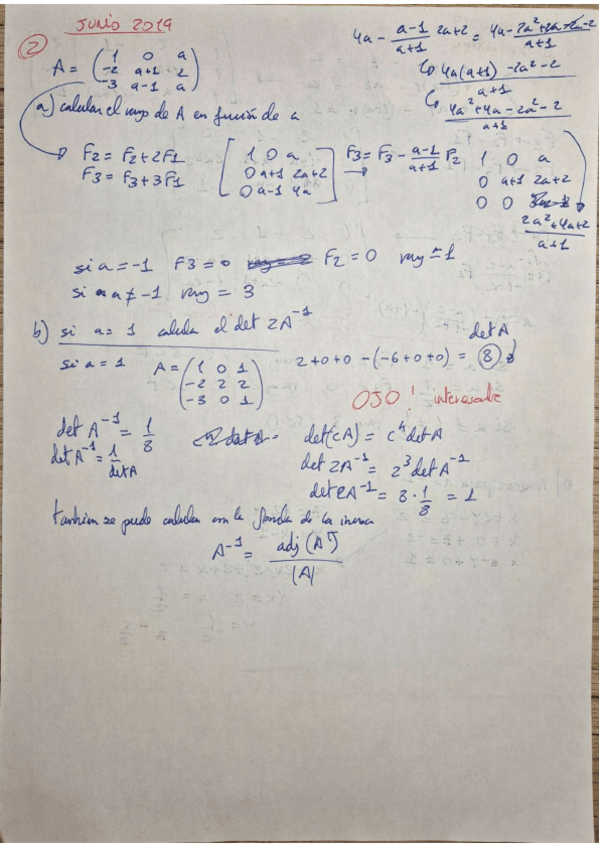 JUNIO 2019
2
A = ( 1 0 a
-2 a+1 2
-3 a-1 a )
4a - a-1/a+1 2a+2 = 4a - 2a²+2a-2a-2/a+1
4a(a+1) -2a²-2/a+1
4a²+4a-2a²-2/a+1
a) calcular el rango de A en función de a
F2 = F2+2F1
F3 = F3+3F1
[ 1 0 a
0 a+1 2a+2
0 a-1 4a ]
F3 = F3 - a-1/a+1 F2
1 0 a
0 a+1 2a+2
0 0
2a²+4a+2/a+1
si a = -1 F3 = 0 F2 = 0 rang = 1
si a ≠ -1 rang = 3
b) si a = 1 calcula el det 2A⁻¹
si a = 1 A = ( 1 0 1
-2 2 2
-3 0 1 )
2+0+0 -(-6+0+0) = 8
det A
OJO! interesante
det A⁻¹ = 1/8
det A⁻¹ = 1/det A
det(cA) = cⁿ det A
det 2A⁻¹ = 2³ det A⁻¹
det 2A⁻¹ = 8 · 1/8 = 1
tambien se puede calcular con la formula de la inversa
A⁻¹ = adj (Aᵗ)/|A|